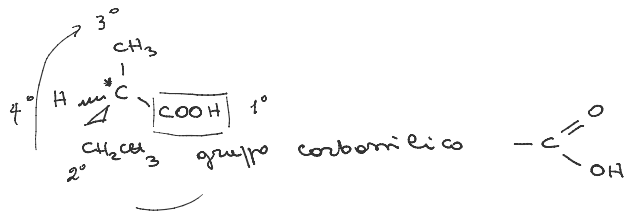 3°
CH3
4° H * C COOH 1°
CH2CH3
2°
gruppo carbossilico
— C O
OH